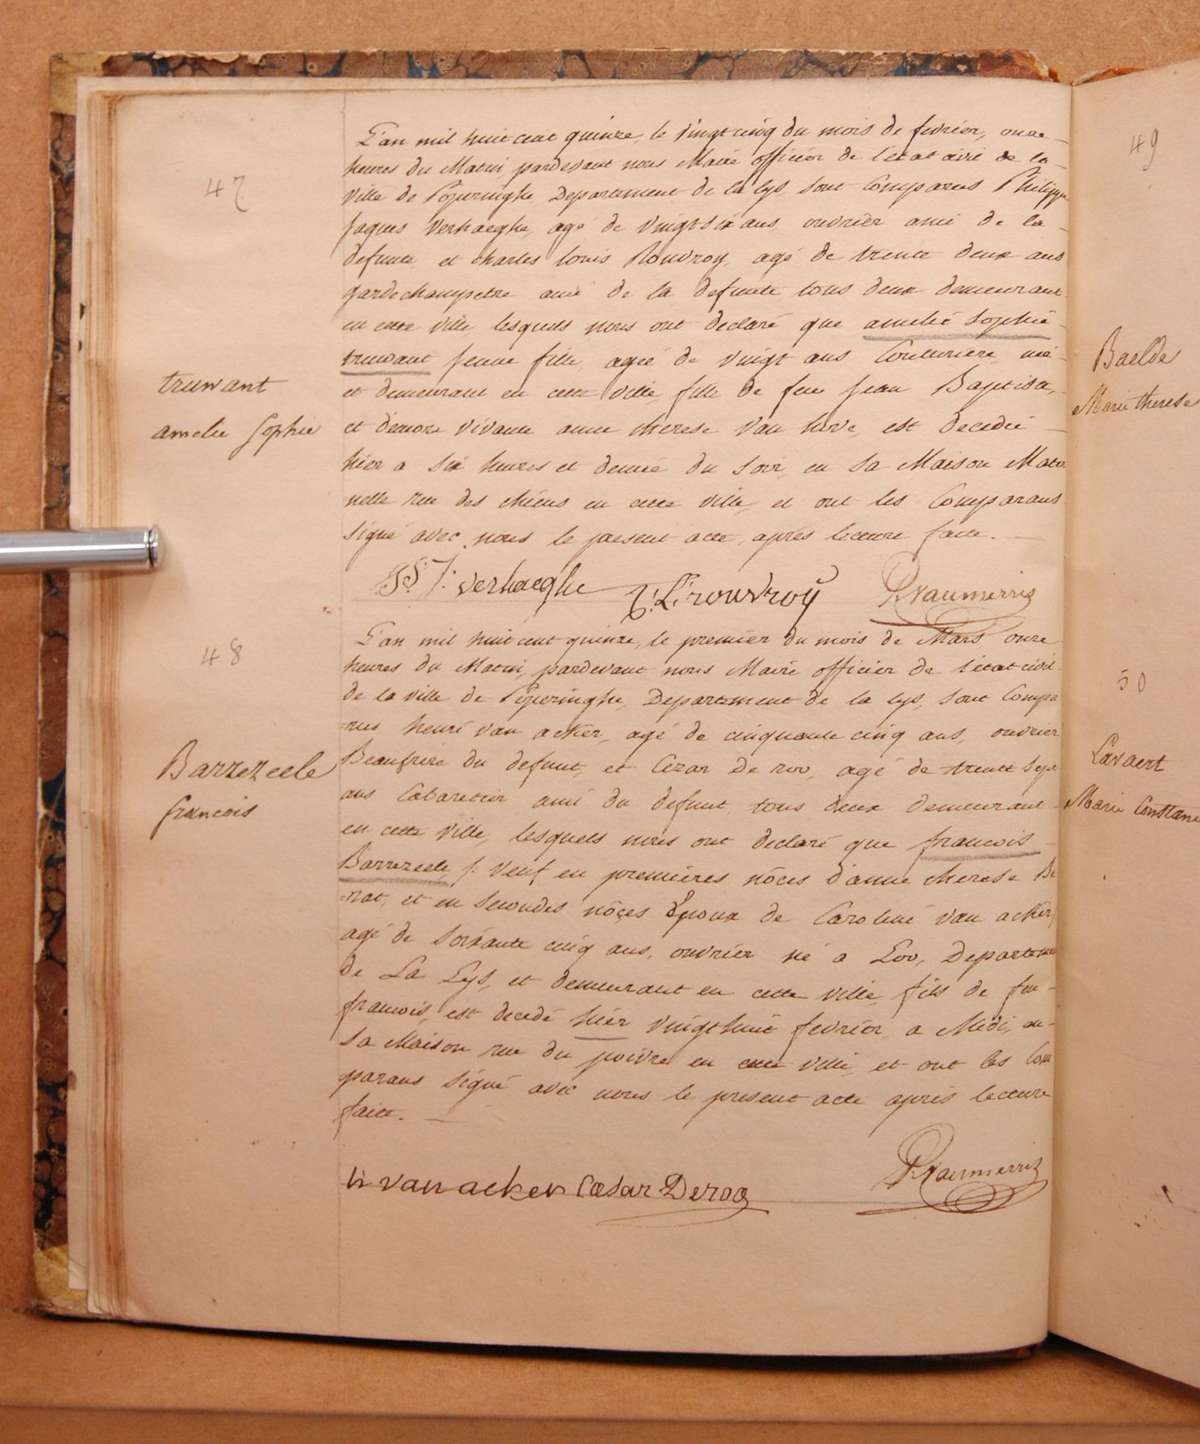 47
truwant
amelie Sophie
L'an mil huit cent quinze, le vingt cinq du mois de fevrier, onze
heures du Matin, pardevant nous Maire officier de l'état civil de la
ville de Poperinghe, Departement de la lys, sont Comparus Philippe
Jaques Verhaeghe, agé de vingt six ans, ouvrier ami de la
defunte et charles louis Rouvroy, agé de trente deux ans
gardechampetre ami de la defunte tous deux demeurant
en cette ville lesquels nous ont declaré que amelie Sophie
truwant jeune fille, agée de vingt ans Couturiere née
et demeurant en cette ville, fille de feu Jean Baptiste,
et d'encore vivante anne therese Van hove, est decedée
hier a six heures et demie du soir, en sa Maison Mater
nelle rue des chiens en cette ville, et ont les Comparans
signé avec nous le present acte, après lecture faite.
Verhaeghe L: rouvroy Vanmerris
48
Barrezeele
francois
L'an mil huit cent quinze, le premier du mois de Mars onze
heures du Matin, pardevant nous Maire officier de l'état civil
de la ville de Poperinghe, Departement de la lys, sont Compa
=rus henri van acker, agé de cinquante cinq ans, ouvrier
Beaufrere du defunt, et Cezar De roo, agé de trente sept
ans Cabaretier ami du defunt tous deux demeurant
en cette ville, lesquels nous ont declaré que francois
Barrezeele, veuf en premières nôces d'anne therese
et en secondes nôces Epoux de Caroline van acker,
agé de soixante cinq ans, ouvrier né a Loo, Departement
de La Lys, et demeurant en cette ville, fils de feu
francois, est decedé hier vingt huit fevrier, a Midi, en
sa Maison rue du poivre en cette ville, et ont les Com
parans signé avec nous le present acte après lecture
faite.
h van acker Cæsar Deroo Vanmerris
49
Baelde
Marie therese
50
Lavaert
Marie Constan